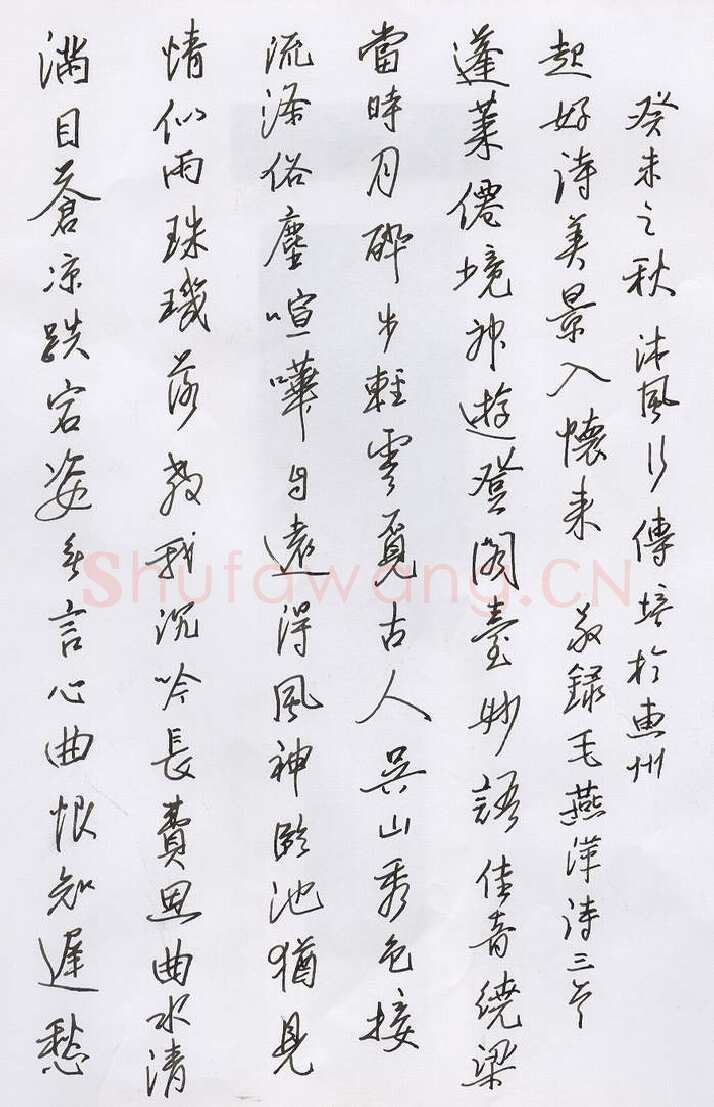 滿目蒼凉跌宕姿無言心曲恨知遲愁
情似雨珠璣落教我沉吟長費思曲水清
流滌俗塵喧嘩自遠得風神臨池猶見
當時月醉步輕雲覓古人吳山秀色接
蓬萊僊境神遊登閣臺妙語佳音繞梁
起好詩美景入懷来 敬録毛燕萍詩三首
癸未之秋沐風行傳培於惠州
Shufawang.CN